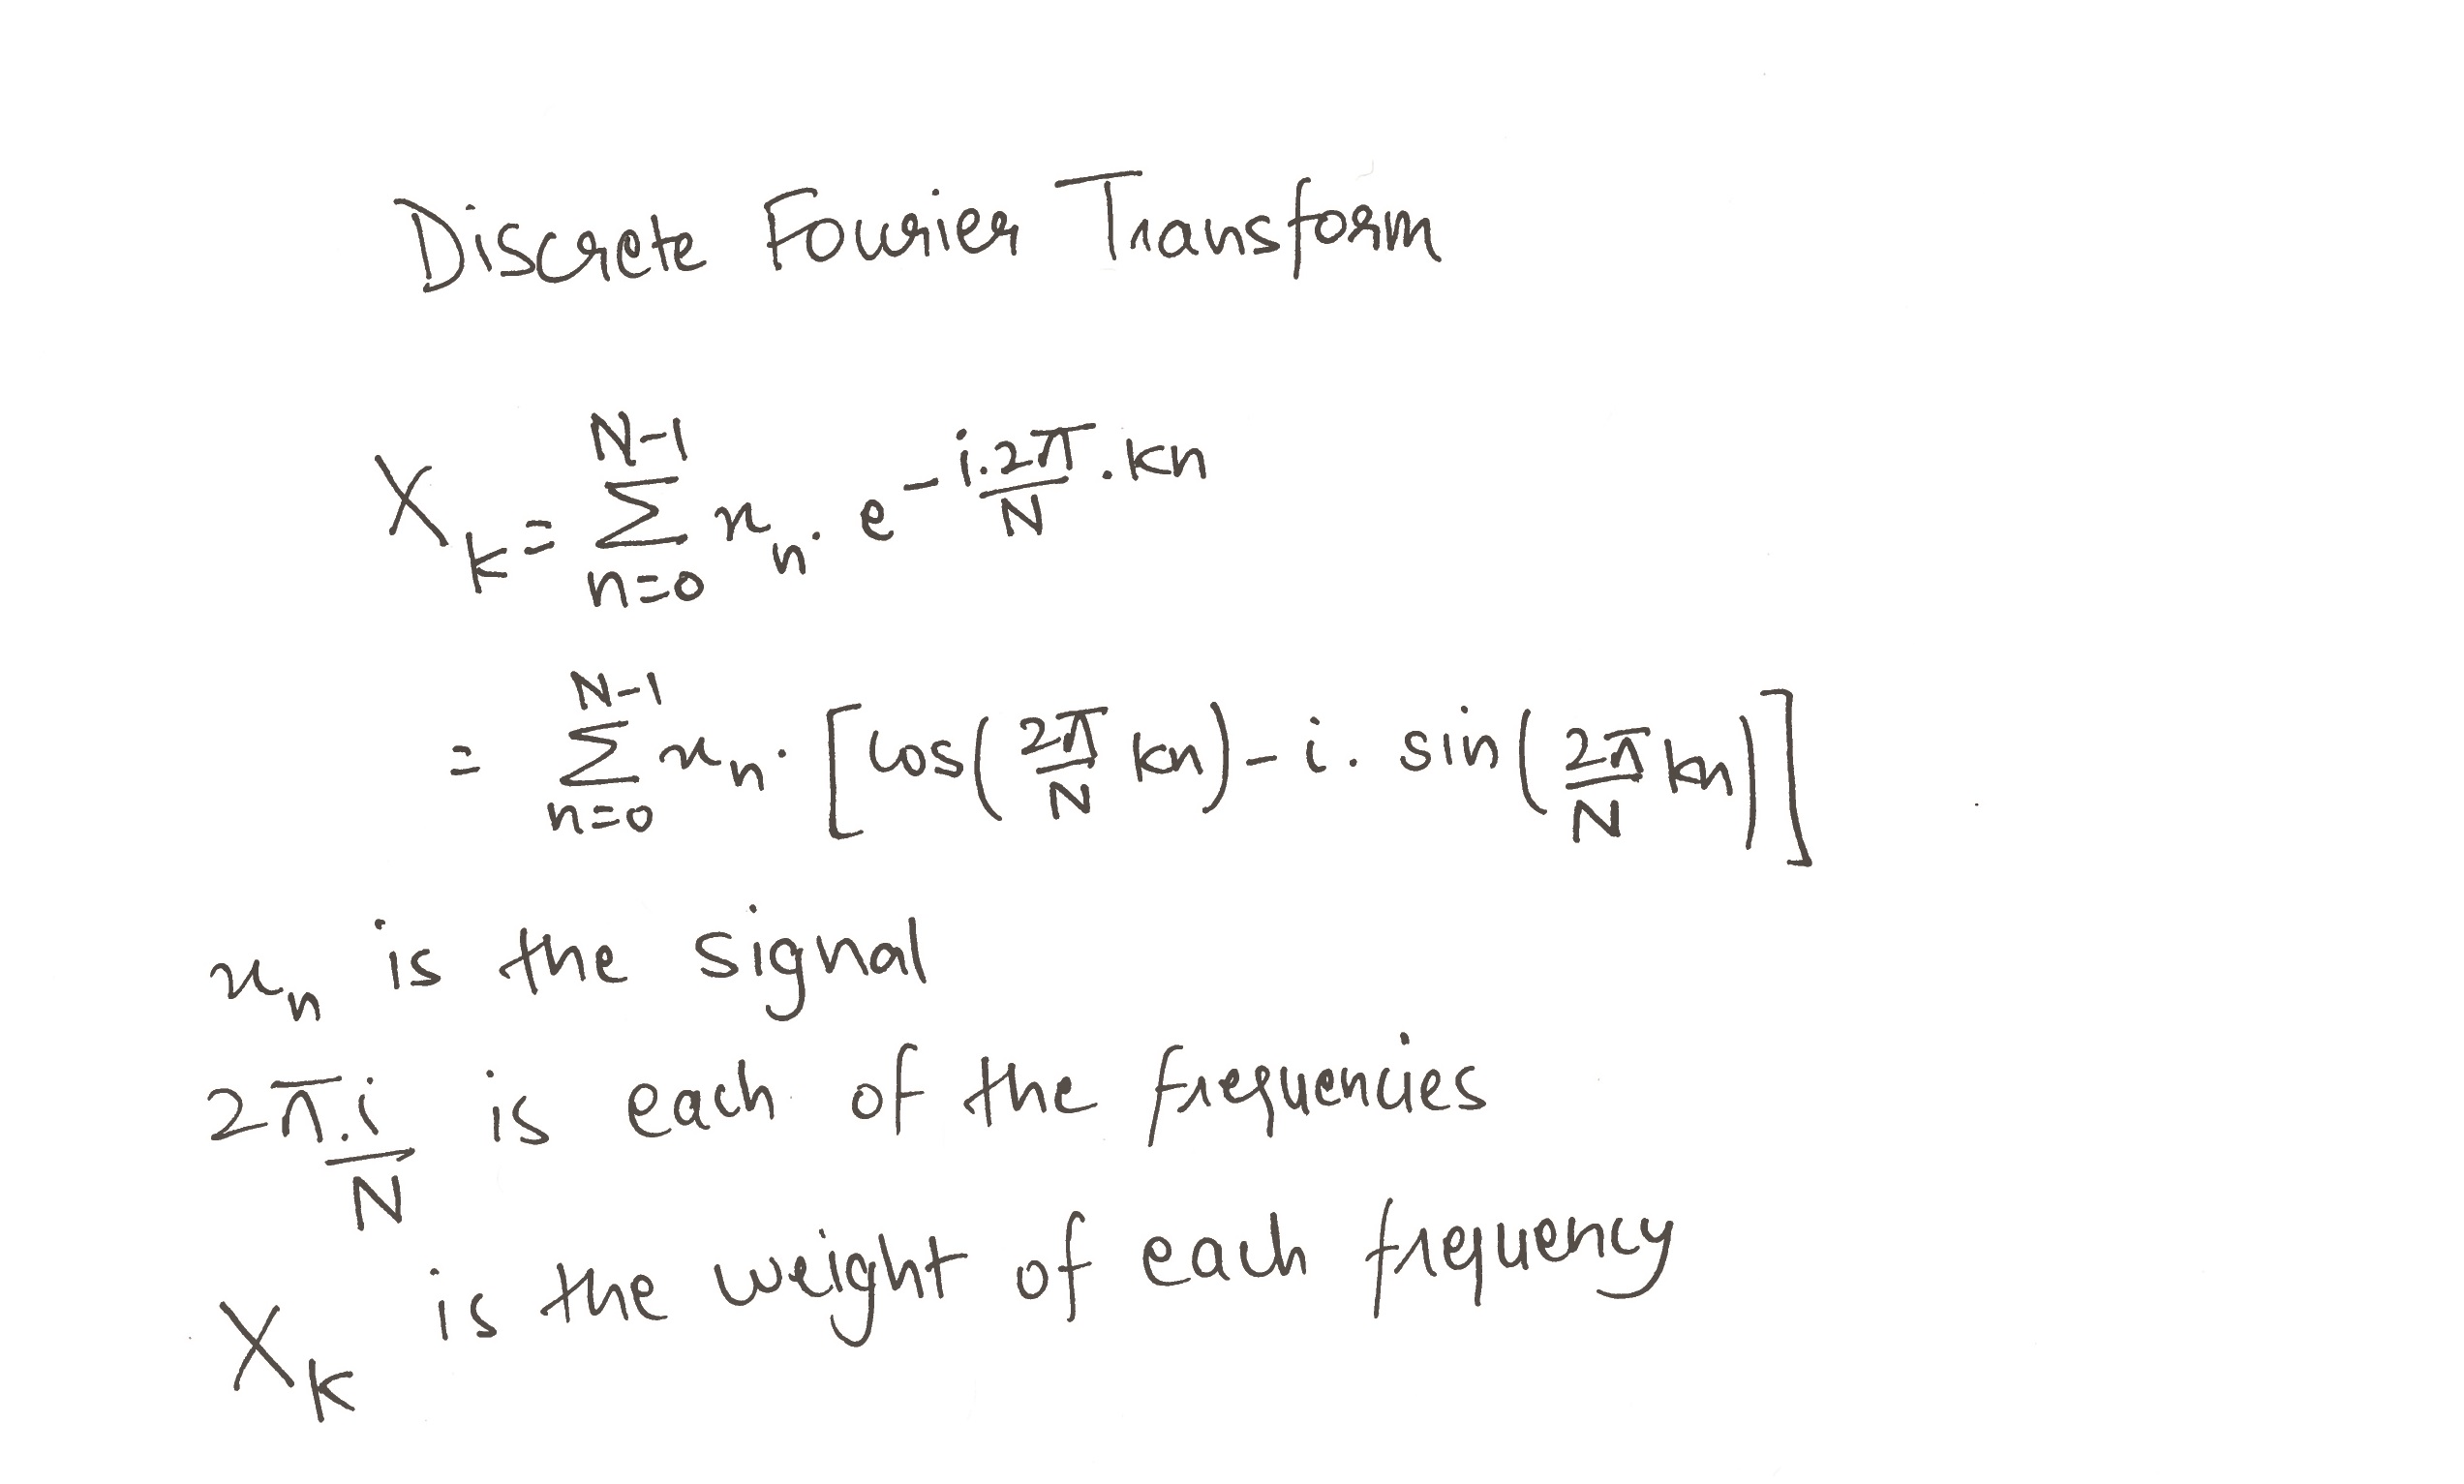 Discrete Fourier Transform
X_k = \sum_{n=0}^{N-1} x_n . e^{-\frac{i.2π}{N}.kn}
= \sum_{n=0}^{N-1} x_n . [cos(\frac{2π}{N} kn) - i. sin(\frac{2π}{N} kn)]
x_n is the signal
\frac{2π.i}{N} is each of the frequencies
X_k is the weight of each frequency